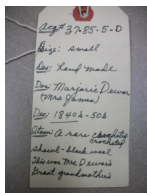 Acq# 37-85-5-D
Size: small
Des: hand made
Don: Marjorie Dewar
(Mrs James)
Dec: 1840s-50s
Item: A rare
crocheted
shawl - black wool
This was Mrs Dewars
Great grandmothers